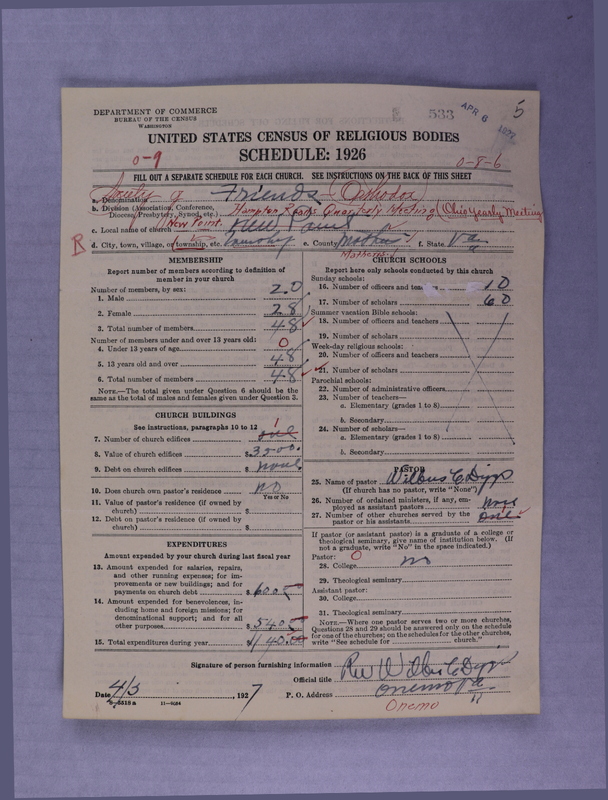 DEPARTMENT OF COMMERCE
BUREAU OF THE CENSUS
WASHINGTON
533
APR 6 1927
5
UNITED STATES CENSUS OF RELIGIOUS BODIES
SCHEDULE: 1926
0-9
0-8-6
FILL OUT A SEPARATE SCHEDULE FOR EACH CHURCH. SEE INSTRUCTIONS ON THE BACK OF THIS SHEET
a. Denomination Society of Friends (Orthodox)
b. Division (Association, Conference, Diocese, Presbytery, Synod, etc.) Hampton Roads Quarterly Meeting (Ohio Yearly Meeting)
c. Local name of church New Point
R
d. City, town, village, or township, etc. e. County Mathews f. State Va
Mathews
MEMBERSHIP
Report number of members according to definition of member in your church
Number of members, by sex:
1. Male 20
2. Female 28
3. Total number of members 48
Number of members under and over 13 years old:
4. Under 13 years of age 0
5. 13 years old and over 48
6. Total number of members 48
NOTE.—The total given under Question 6 should be the same as the total of males and females given under Question 3.
CHURCH BUILDINGS
See instructions, paragraphs 10 to 12
7. Number of church edifices one 1
8. Value of church edifices $3500.
9. Debt on church edifices $ none
10. Does church own pastor's residence? no
Yes or No
11. Value of pastor's residence (if owned by church) $
12. Debt on pastor's residence (if owned by church) $
EXPENDITURES
Amount expended by your church during last fiscal year
13. Amount expended for salaries, repairs, and other running expenses; for improvements or new buildings; and for payments on church debt $600
14. Amount expended for benevolences, including home and foreign missions; for denominational support; and for all other purposes $540
15. Total expenditures during year $1140.00
CHURCH SCHOOLS
Report here only schools conducted by this church
Sunday schools:
16. Number of officers and teachers 10
17. Number of scholars 60
Summer vacation Bible schools:
18. Number of officers and teachers
19. Number of scholars
Week-day religious schools:
20. Number of officers and teachers
21. Number of scholars
Parochial schools:
22. Number of administrative officers
23. Number of teachers—
a. Elementary (grades 1 to 8)
b. Secondary
24. Number of scholars—
a. Elementary (grades 1 to 8)
b. Secondary
PASTOR
25. Name of pastor Wilbus C Dipp
(If church has no pastor, write "None")
26. Number of ordained ministers, if any, employed as assistant pastors none
27. Number of other churches served by the pastor or his assistants one
If pastor (or assistant pastor) is a graduate of a college or theological seminary, give name of institution below. (If not a graduate, write "No" in the space indicated.)
Pastor: 0
28. College no
29. Theological seminary
Assistant pastor:
30. College
31. Theological seminary
NOTE.—Where one pastor serves two or more churches, Questions 28 and 29 should be answered only on the schedule for one of the churches; on the schedules for the other churches, write "See schedule for church."
Signature of person furnishing information Rev Wilbus C Dipp
Official title
Date 4/5 1927
P. O. Address Onemo Va
8-5518a 11-9684
Onemo